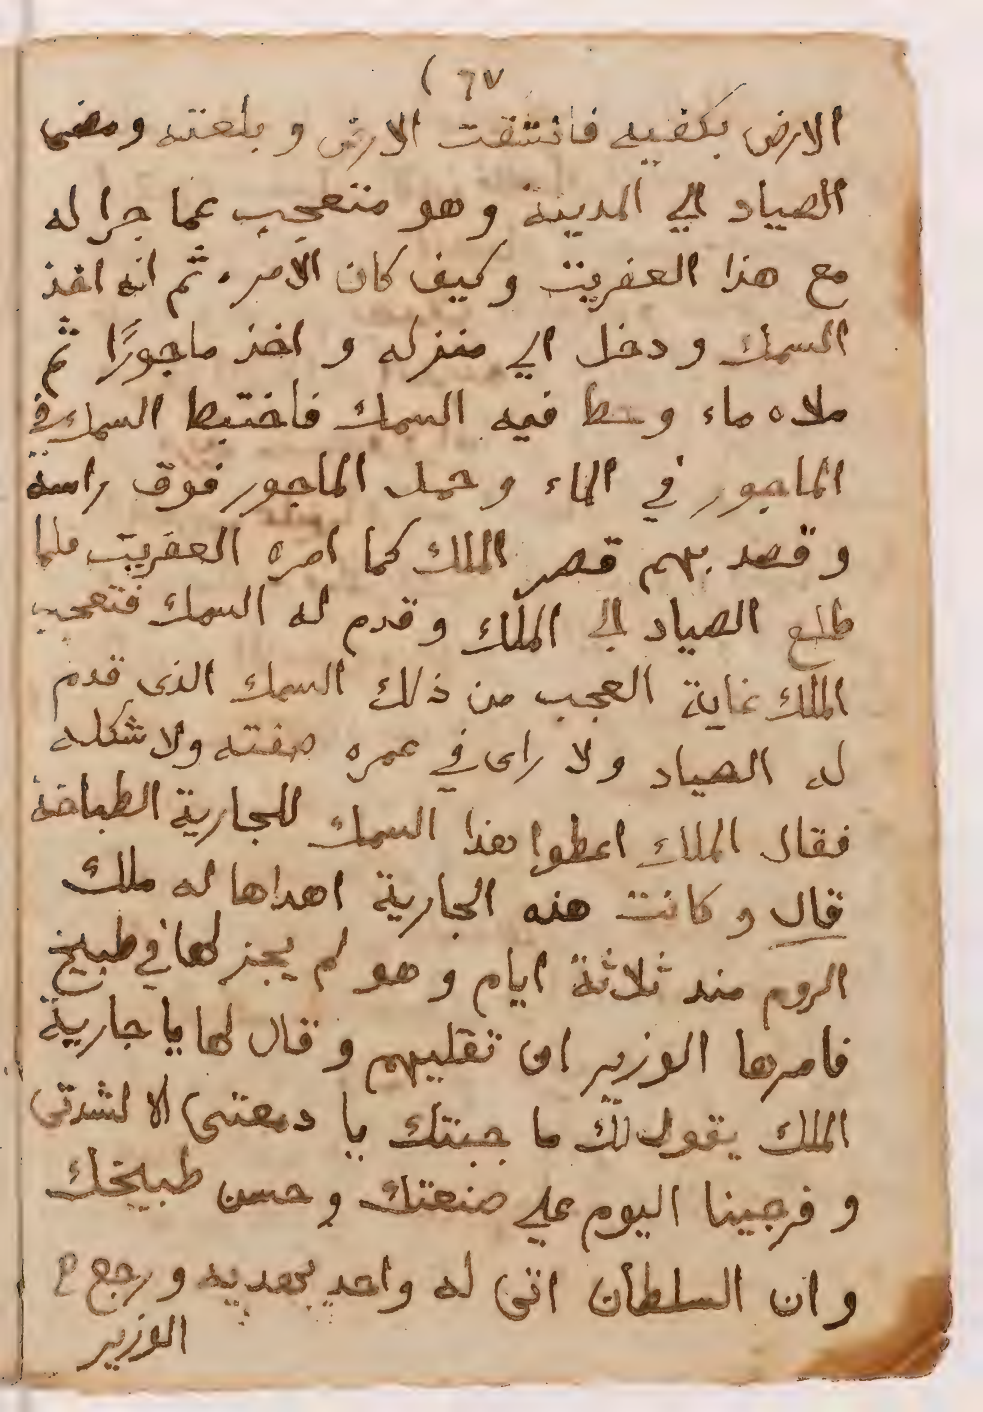 ( ٦٧
الارض بكفيه فانشقت الارض و بلعته ومضى
الصياد الي المدينة وهو متعجب عما جرا له
مع هذا العفريت وكيف كان الامر. ثم انه اخذ
السمك ودخل الي منزله و اخذ ماجورًا ثم
ملاه ماء وحط فيه السمك فاختبط السمك في
الماجور في الماء وحمل الماجور فوق راسه
و قصد بهم قصر الملك كما امره العفريت فلما
طلع الصياد الي الملك وقدم له السمك فتعجب
الملك غاية العجب من ذلك السمك الذى قدم
له الصياد ولا راى في عمره صفته ولا شكله
فقال الملك اعطوا هذا السمك للجارية الطباخة
قال وكانت هذه الجارية اهداها له ملك
الروم مند ثلاثة ايام وهو لم يجز لها في طبيخ
فامرها الوزير ان تقليهم وقال لها يا جارية
الملك يقول لك ما جبنتك يا دمعتى الا لشدتى
و فرجينا اليوم علي صنعتك وحسن طبيخك
وان السلطان اتى له واحد بهديه ورجع
الوزير